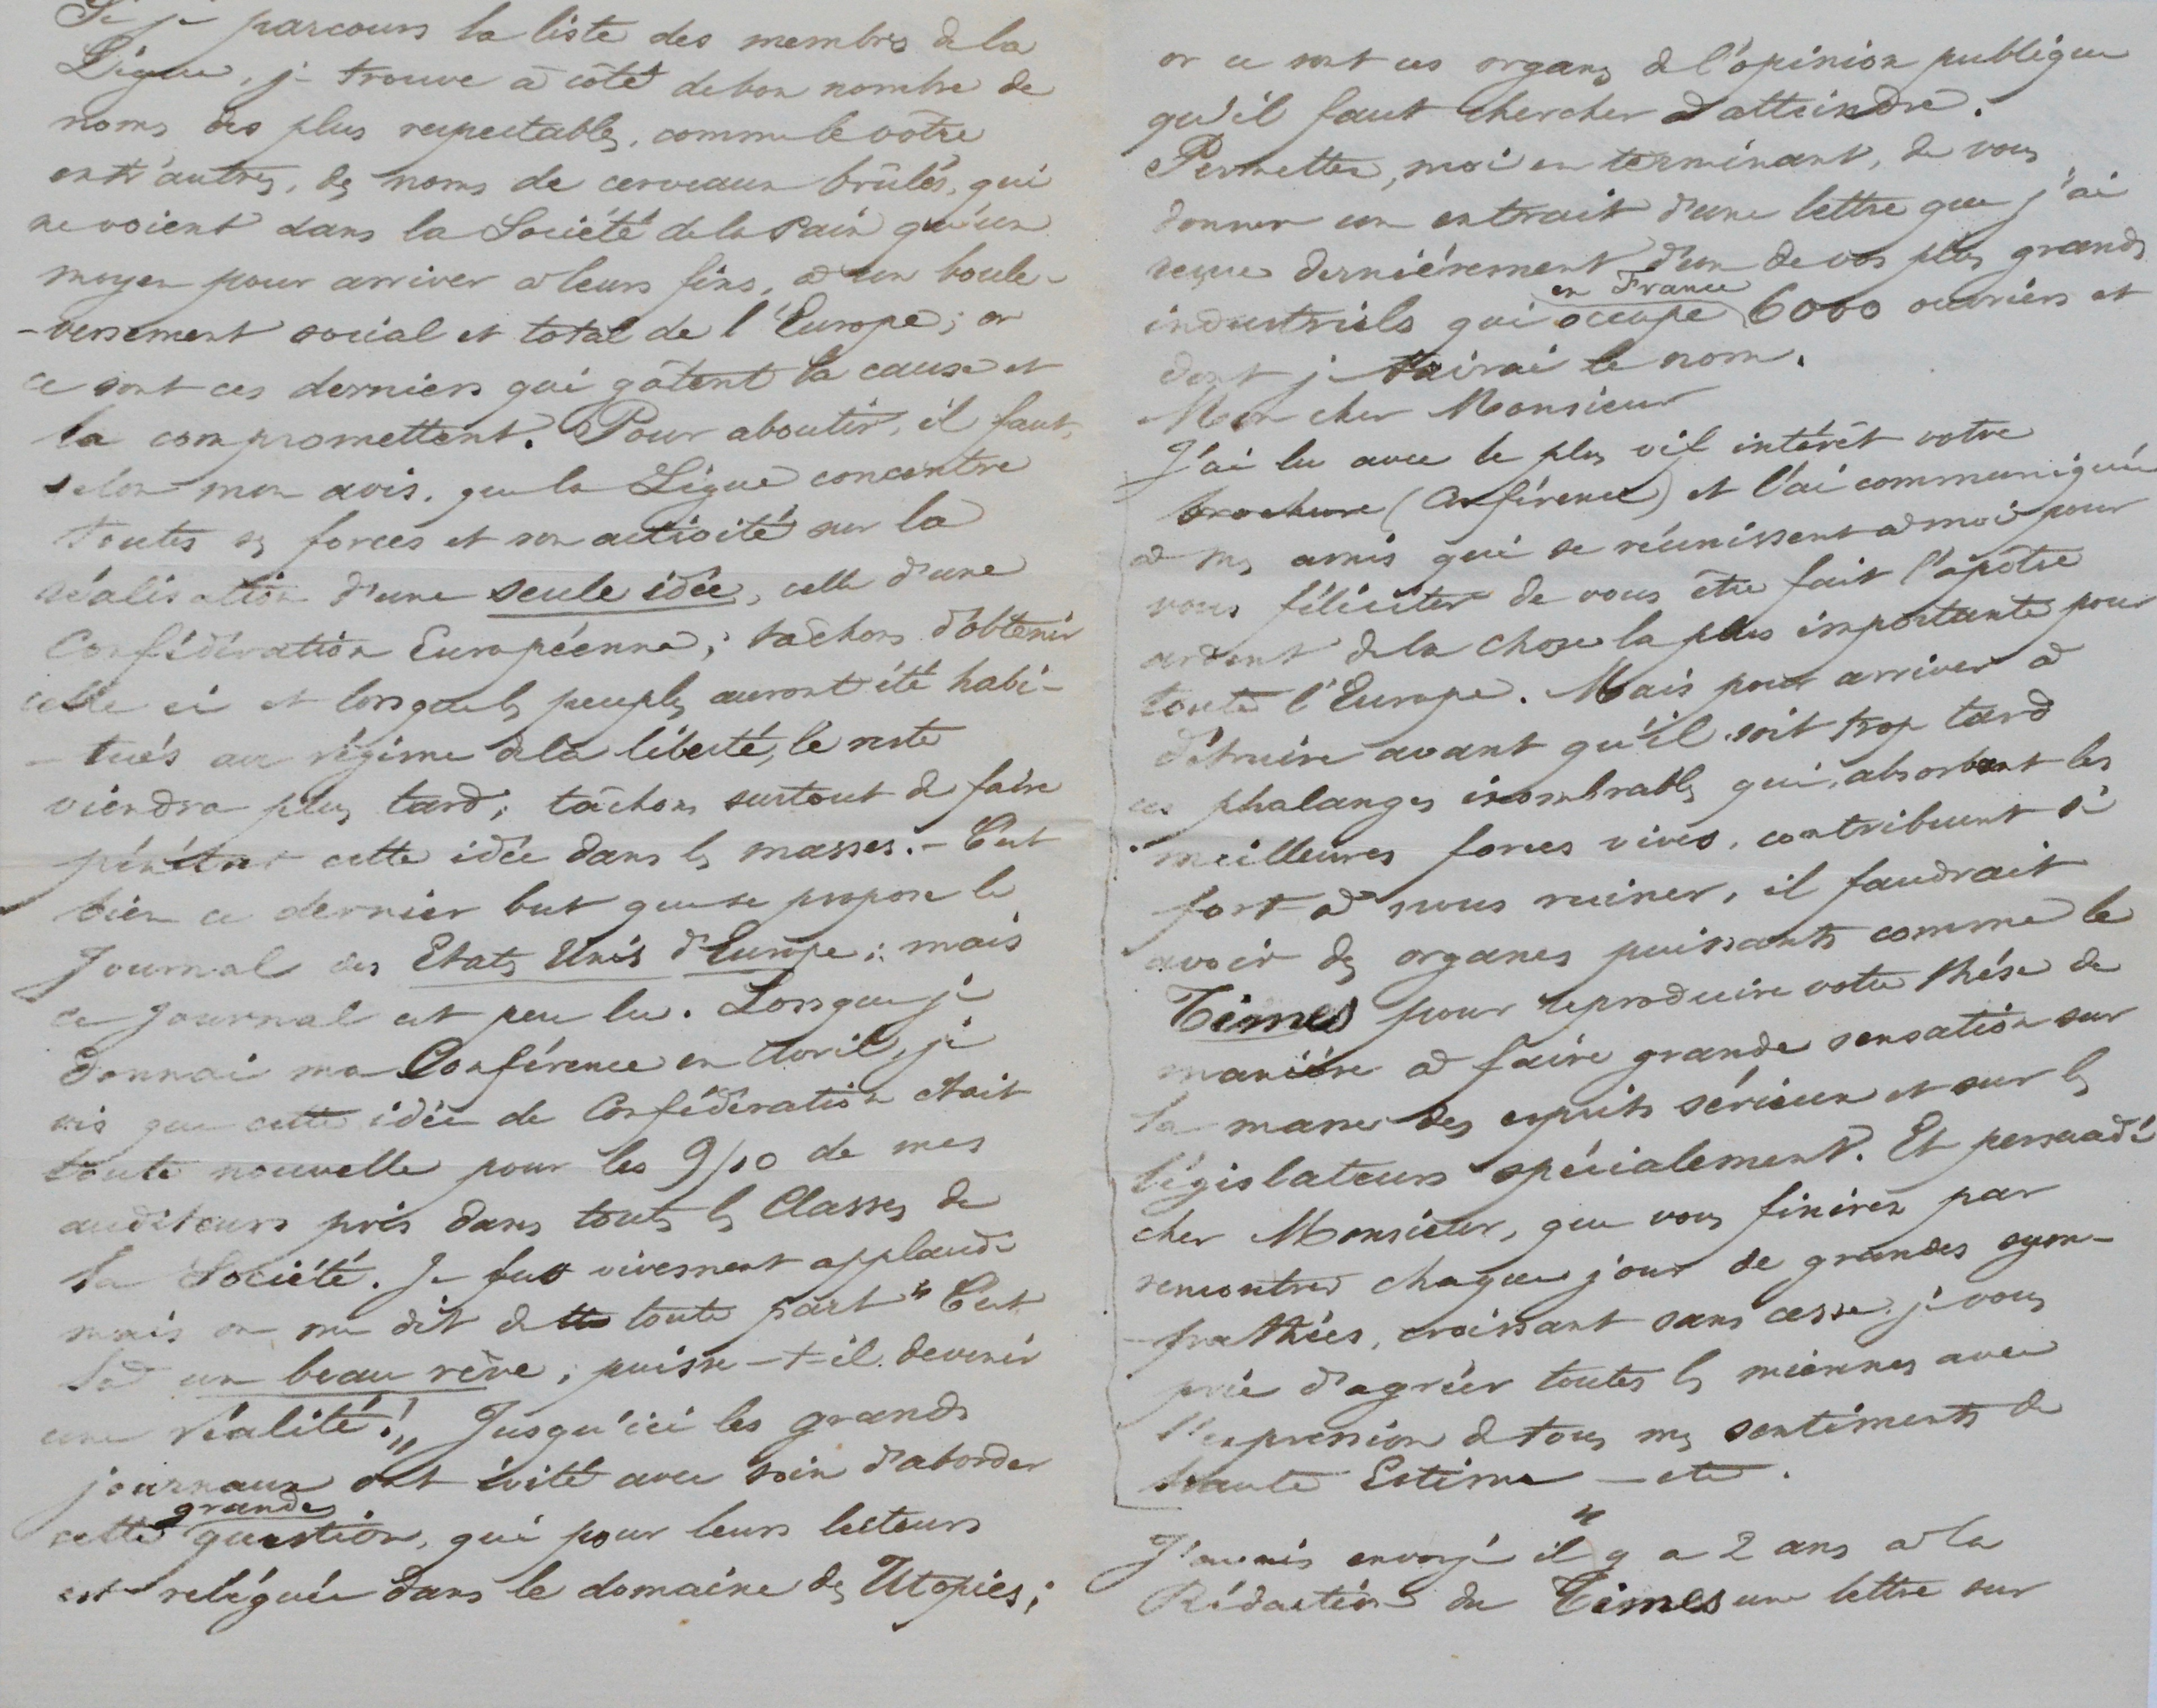 Si je parcours la liste des membres de la
Ligue, je trouve à côté de bon nombre de
noms des plus respectables, comme le vôtre
entr'autres, des noms de cerveaux brûlés, qui
ne voient dans la Société de la Paix qu'un
moyen pour arriver à leurs fins, à un boule-
-versement social et total de l'Europe; or
ce sont ces derniers qui gâtent la cause et
la compromettent. Pour aboutir, il faut,
selon mon avis, que la Ligue concentre
toutes ses forces et son activité sur la
réalisation d'une seule idée, celle d'une
Confédération Européenne; tâchons d'obtenir
celle ci et lorsque les peuples auront été habi-
-tués au régime de la liberté, le reste
viendra plus tard; tâchons surtout de faire
pénétrer cette idée dans les masses. - C'est
bien ce dernier but que se propose le
Journal des Etats Unis d'Europe; mais
ce Journal est peu lu. Lorsque je
donnai ma Conférence en Avril, je
vis que cette idée de Confédération était
toute nouvelle pour les 9/10 de mes
auditeurs pris dans toutes les Classes de
la Société. Je fus vivement applaudi
mais on me dit de toute part "C'est
là un beau rêve; puisse-t-il devenir
une réalité!" Jusqu'ici les grands
journaux ont évité avec soin d'aborder
cette grande question, qui pour leurs lecteurs
est reléguée dans le domaine des Utopies;
or ce sont ces organes de l'opinion publique
qu'il faut chercher d'atteindre.
Permettez, moi en terminant, de vous
donner un extrait d'une lettre que j'ai
reçue dernièrement d'un de vos plus grands
industriels qui occupe en France 6000 ouvriers et
dont je tairai le nom.
Mon cher Monsieur
J'ai lu avec le plus vif intérêt votre
brochure (Conférence) et l'ai communiquée
à mes amis qui se réunissent à moi pour
vous féliciter de vous être fait l'apôtre
ardent de la chose la plus importante pour
toute l'Europe. Mais pour arriver à
détruire avant qu'il soit trop tard
ces phalanges inombrables qui, absorbant les
meilleures forces vives, contribuent si
fort à nous ruiner, il faudrait
avoir des organes puissants comme le
Times pour reproduire votre thése de
manière à faire grande sensation sur
la masse des esprits sérieux et sur les
législateurs spécialement. Et persuadé
cher Monsieur, que vous finirez par
rencontrer chaque jour de grandes sym-
-pathies, croissant sans cesse, je vous
prie d'agréer toutes les miennes avec
l'expression de tous mes sentiments de
haute Estime - etc.
J'avais envoyé il y a 2 ans à la
Rédaction du Times une lettre sur